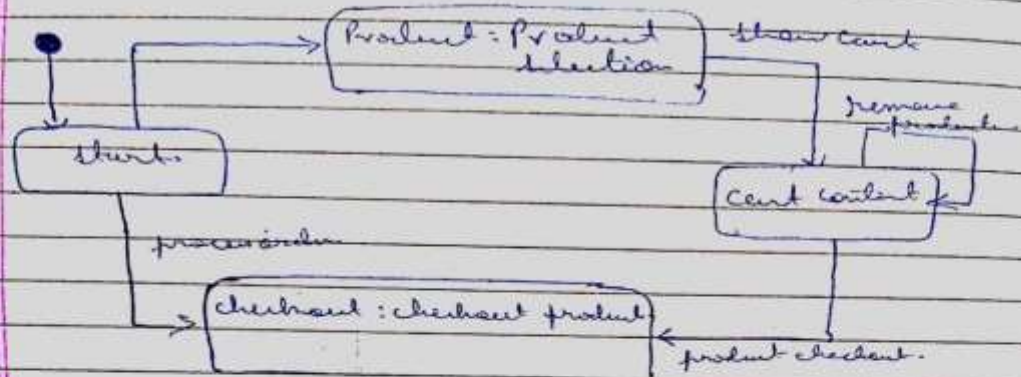 Product : Product
selection
show cart
remove
product
start.
cart content
process order
checkout : checkout product
product checkout.